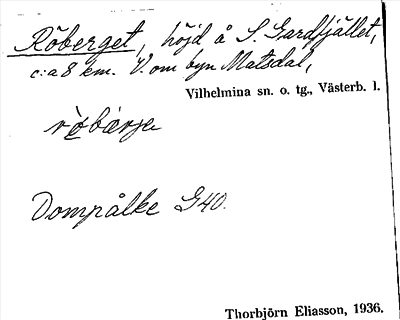 Röberget, höjd å S. Gardfjället,
c:a 8 km. V. om byn Matsdal,
Vilhelmina sn. o. tg., Västerb. l.
Dompålke G40.
Thorbjörn Eliasson, 1936.